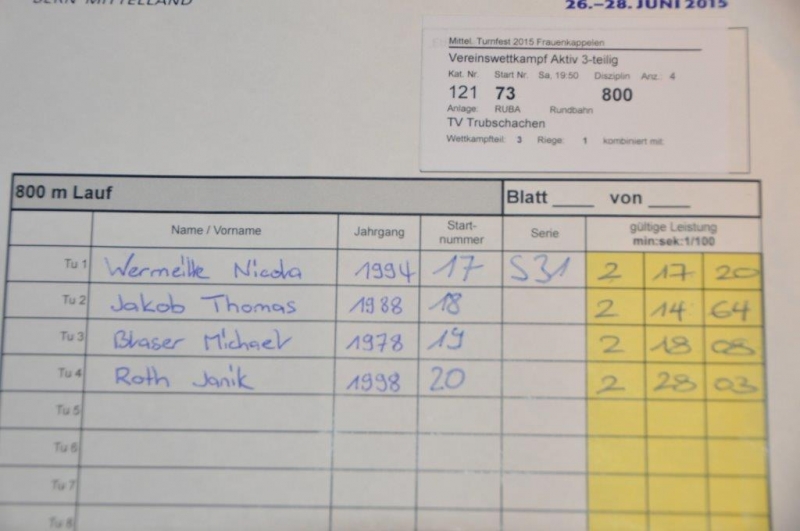 BERN-MITTELLAND
26.–28. JUNI 2015
Mittel. Turnfest 2015 Frauenkappelen
Vereinswettkampf Aktiv 3-teilig
Kat. Nr. Start Nr. Sa, 19:50 Disziplin Anz.: 4
121 73 800
Anlage: RUBA Rundbahn
TV Trubschachen
Wettkampfteil: 3 Riege: 1 kombiniert mit:
800 m Lauf Blatt ____ von ____
Name / Vorname Jahrgang Start-nummer Serie gültige Leistung min:sek:1/100
Tu 1 Wermeille Nicola 1994 17 S31 2 17 20
Tu 2 Jakob Thomas 1988 18 2 14 64
Tu 3 Blaser Michael 1978 19 2 18 08
Tu 4 Roth Janik 1998 20 2 28 03
Tu 5
Tu 6
Tu 7
Tu 8